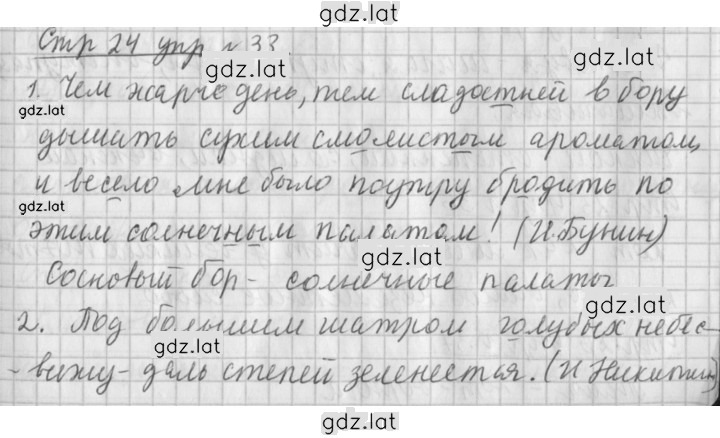 gdz.lat
Стр 24 упр №33
gdz.lat
1. Чем жарче день, тем сладостней в бору
gdz.lat
дышать сухим смолистым ароматом,
и весело мне было поутру бродить по
gdz.lat gdz.lat
этим солнечным палатам! (И.Бунин)
gdz.lat
Сосновый бор - солнечные палаты
gdz.lat
2. Под большим шатром голубых небес
gdz.lat
- вижу - даль степей зеленеется. (И Никитин)
gdz.lat